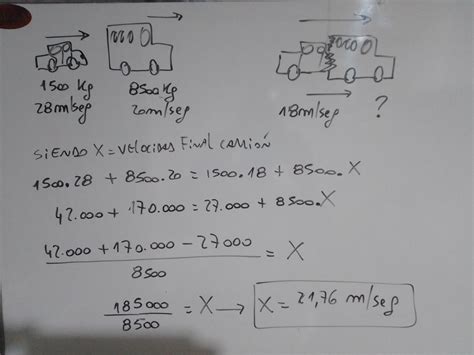 1500 Kg 8500 Kg
28m/seg 20m/seg 18m/seg ?
SIENDO X = VELOCIDAD FINAL CAMIÓN
1500.28 + 8500.20 = 1500.18 + 8500.X
42.000 + 170.000 = 27.000 + 8500.X
42.000 + 170.000 - 27000
8500
= X
185000
8500
= X → X = 21,76 m/seg